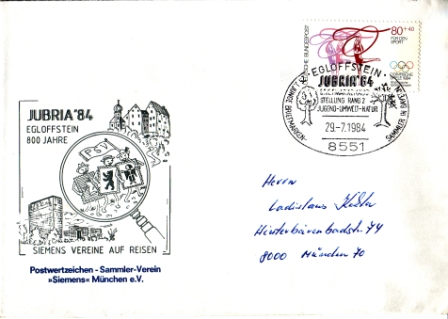 DEUTSCHE BUNDESPOST
80+40
FÜR DEN
SPORT
EGLOFFSTEIN
JUBRIA'84
STELLUNG RANG 2
JUGEND-UMWELT-NATUR
JUNGE BRIEFMARKEN-
SAMMLER IN
29.-7.1984
8551
JUBRIA'84
EGLOFFSTEIN
800 JAHRE
PSV
SIEMENS VEREINE AUF REISEN
Postwertzeichen - Sammler-Verein
»Siemens« München e.V.
Herrn
Ladislaus
Hinterbärenbadstr. 74
8000 München 70